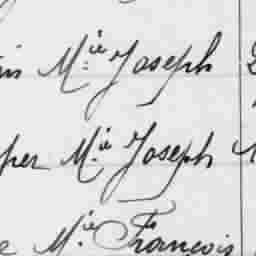 Mie Joseph
per Mie Joseph
Mie François